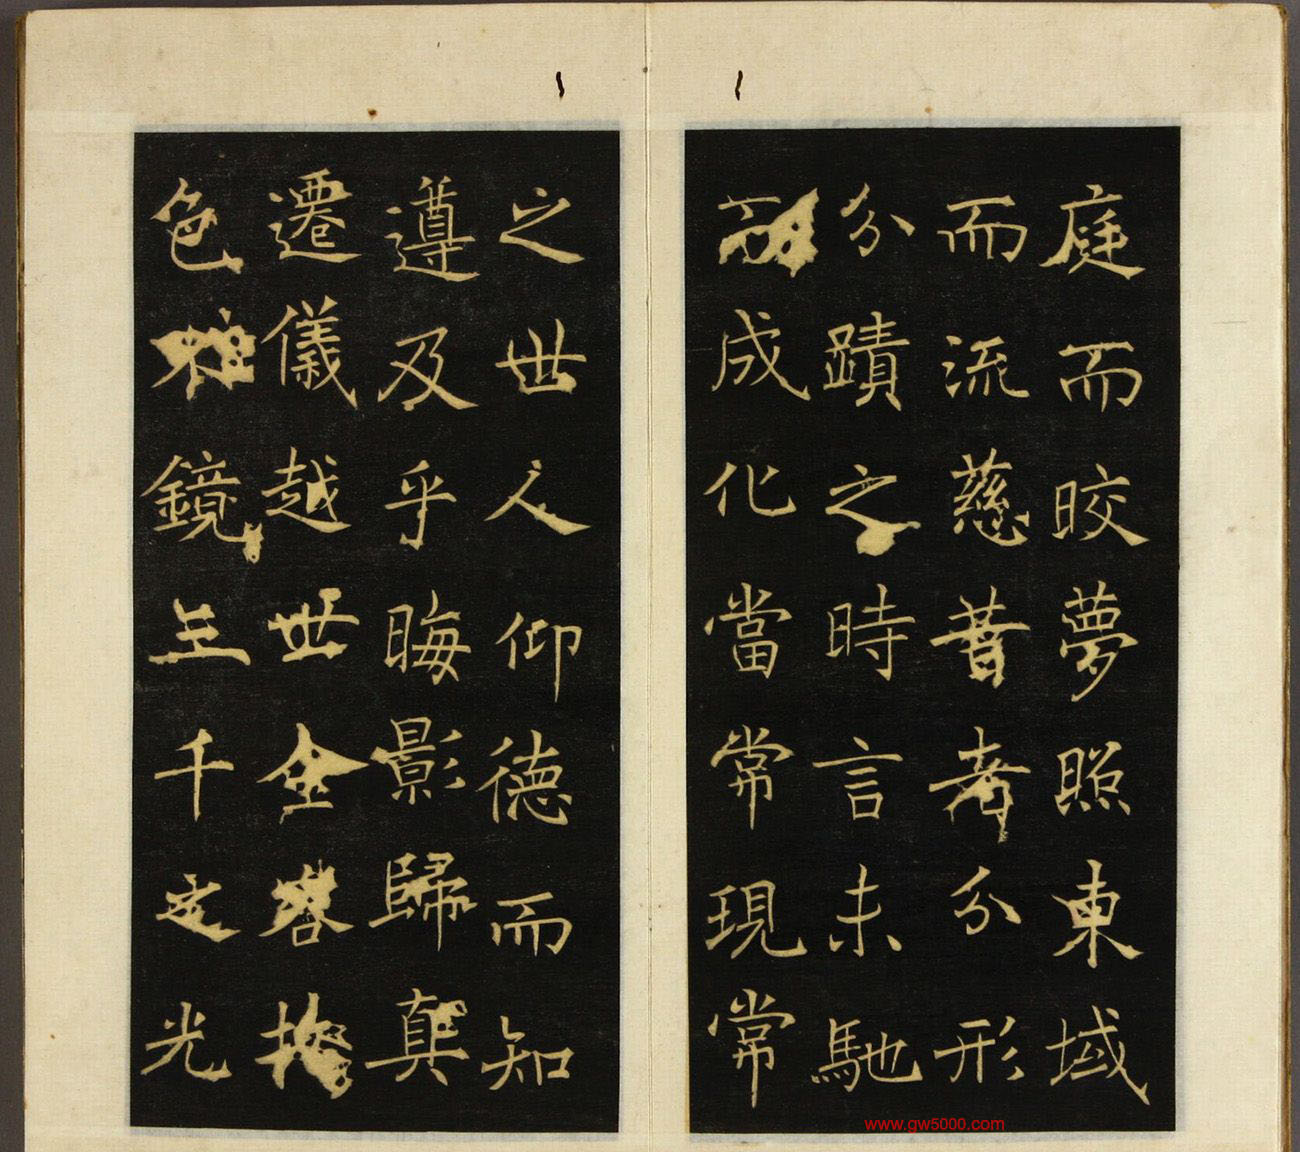 庭而晈夢照東域
而流慈昔者分形
分蹟之時言未馳
而成化當常現常
之世人仰德而知
遵及乎晦影歸真
遷儀越世金容掩
色不鏡三千之光
www.gw5000.com